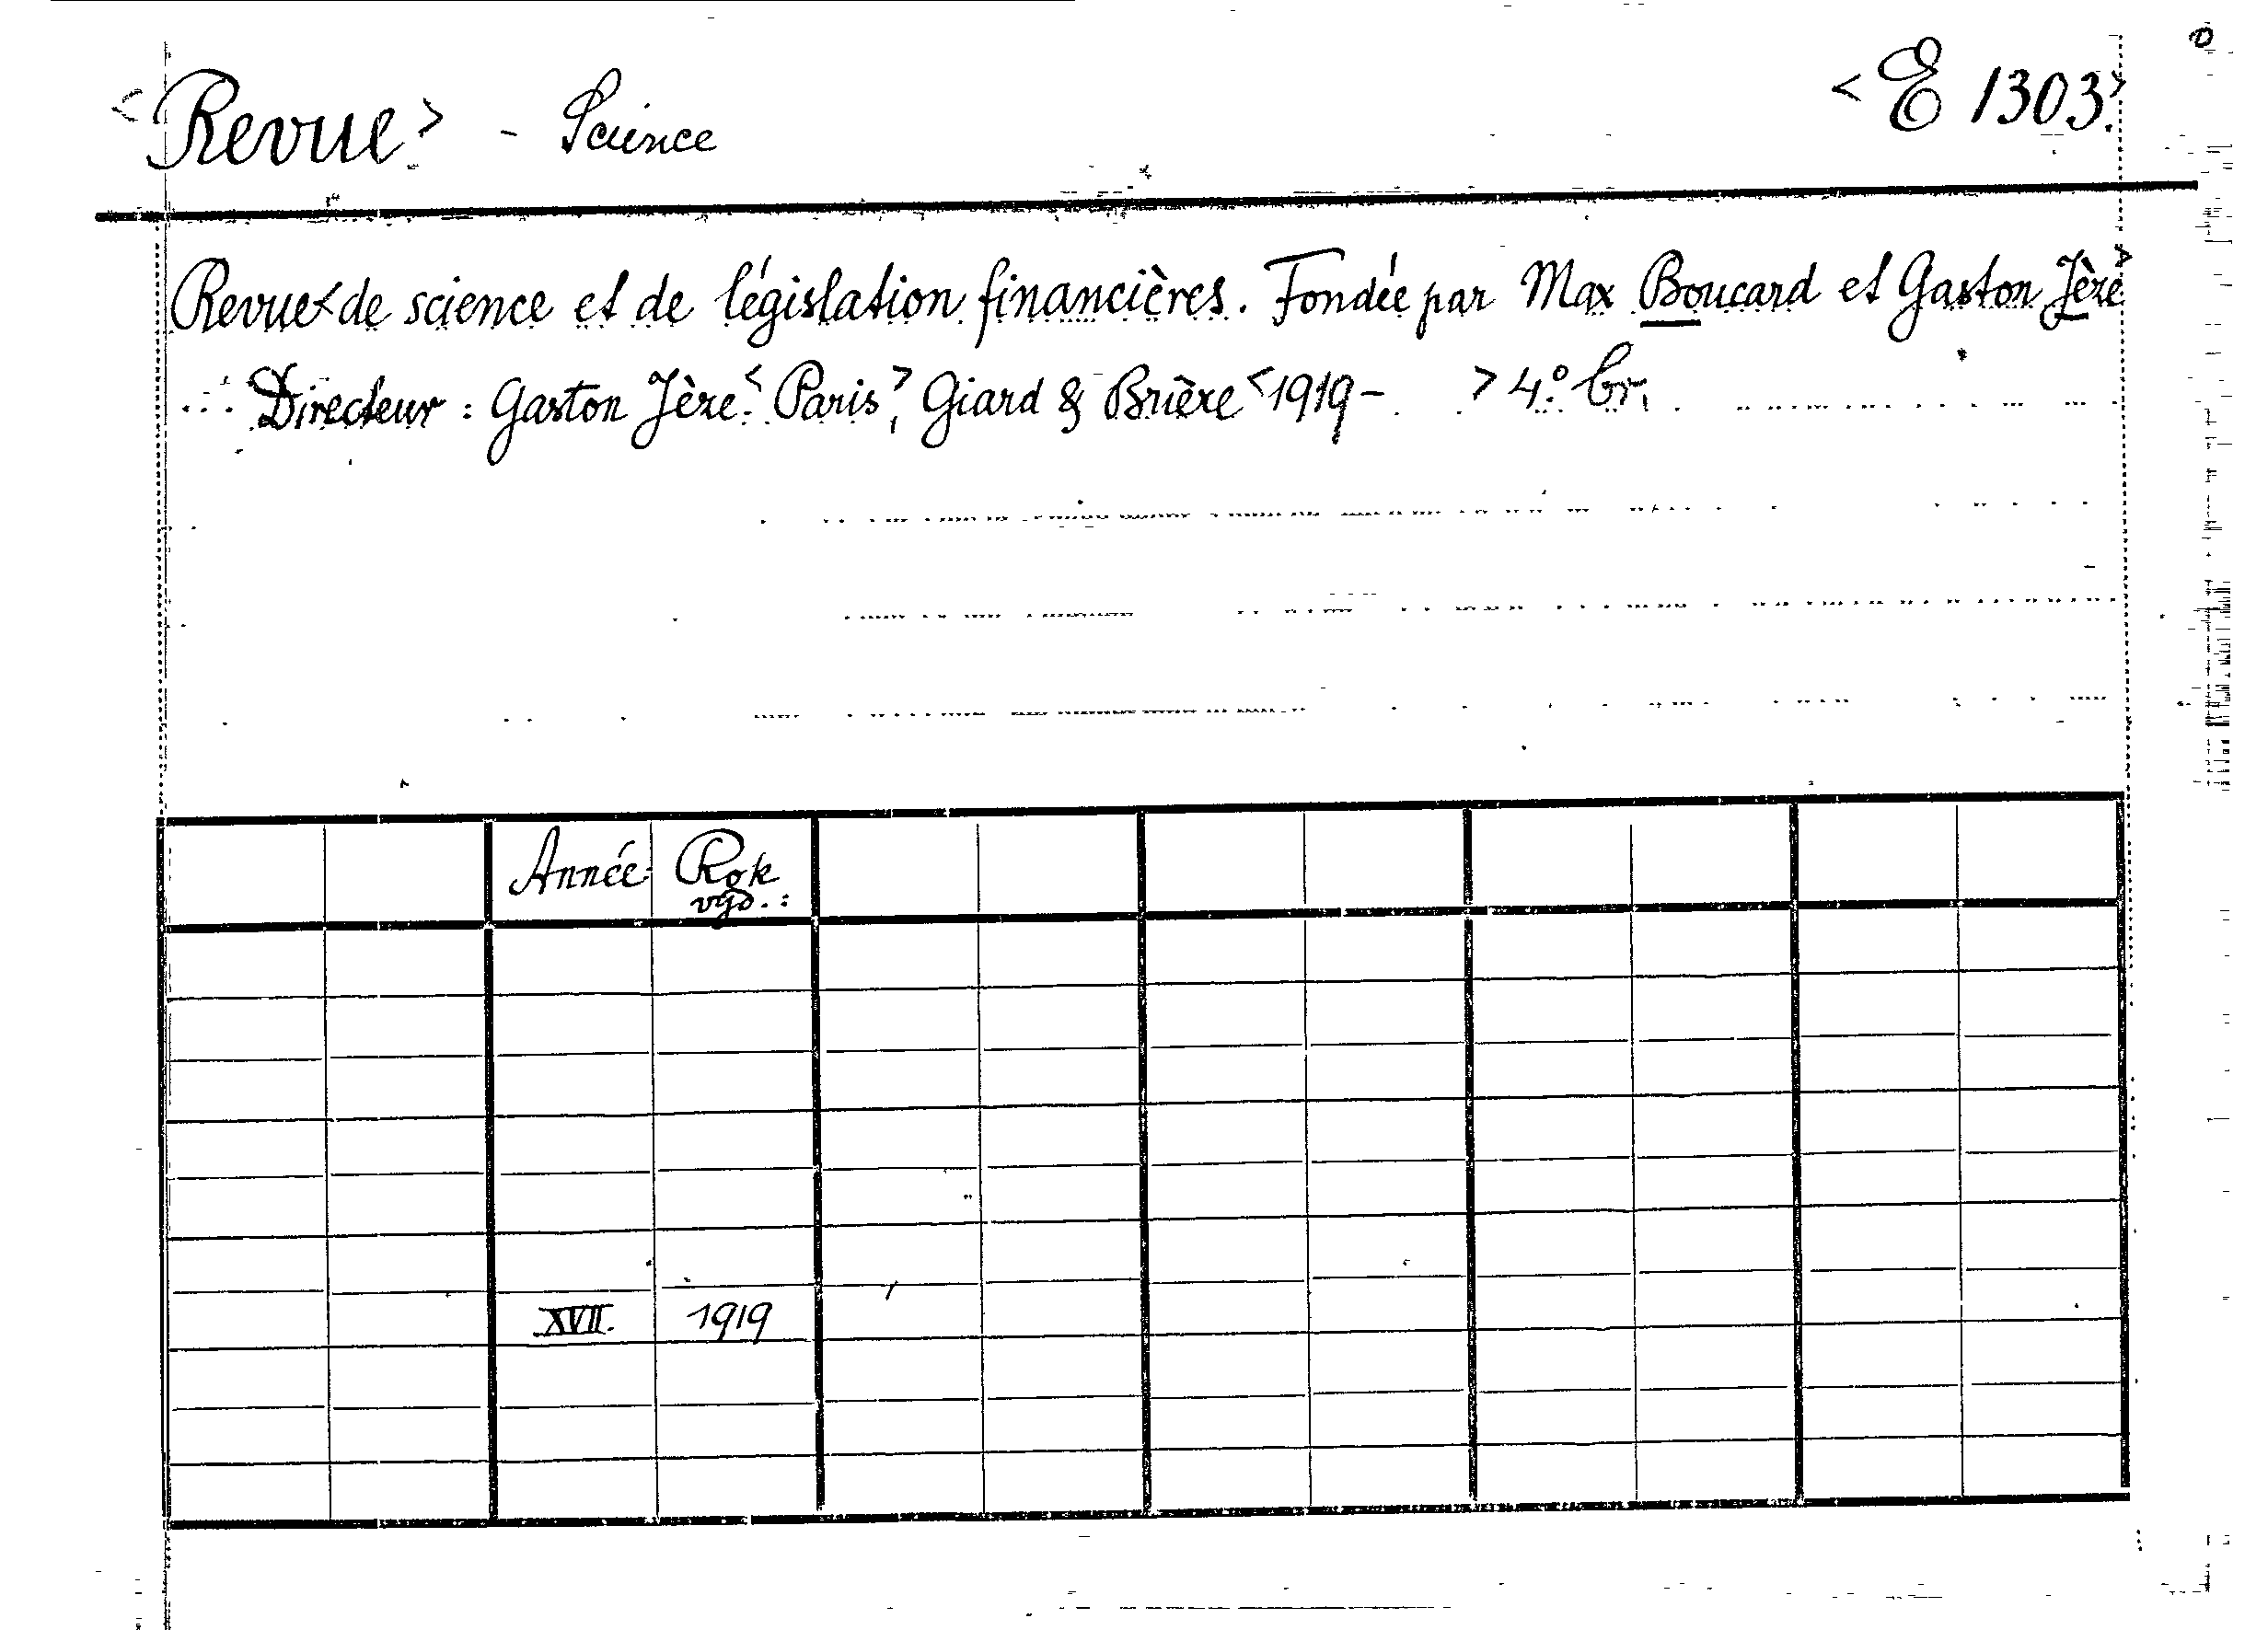 <Revue> - Science <E 1303.>
Revue< de science et de législation financières. Fondée par Max Boucard et Gaston Jèze>
Directeur : Gaston Jèze. <Paris>, Giard & Brière <1919- > 4.° br.
Année Rok vyd. :
XVII. 1919